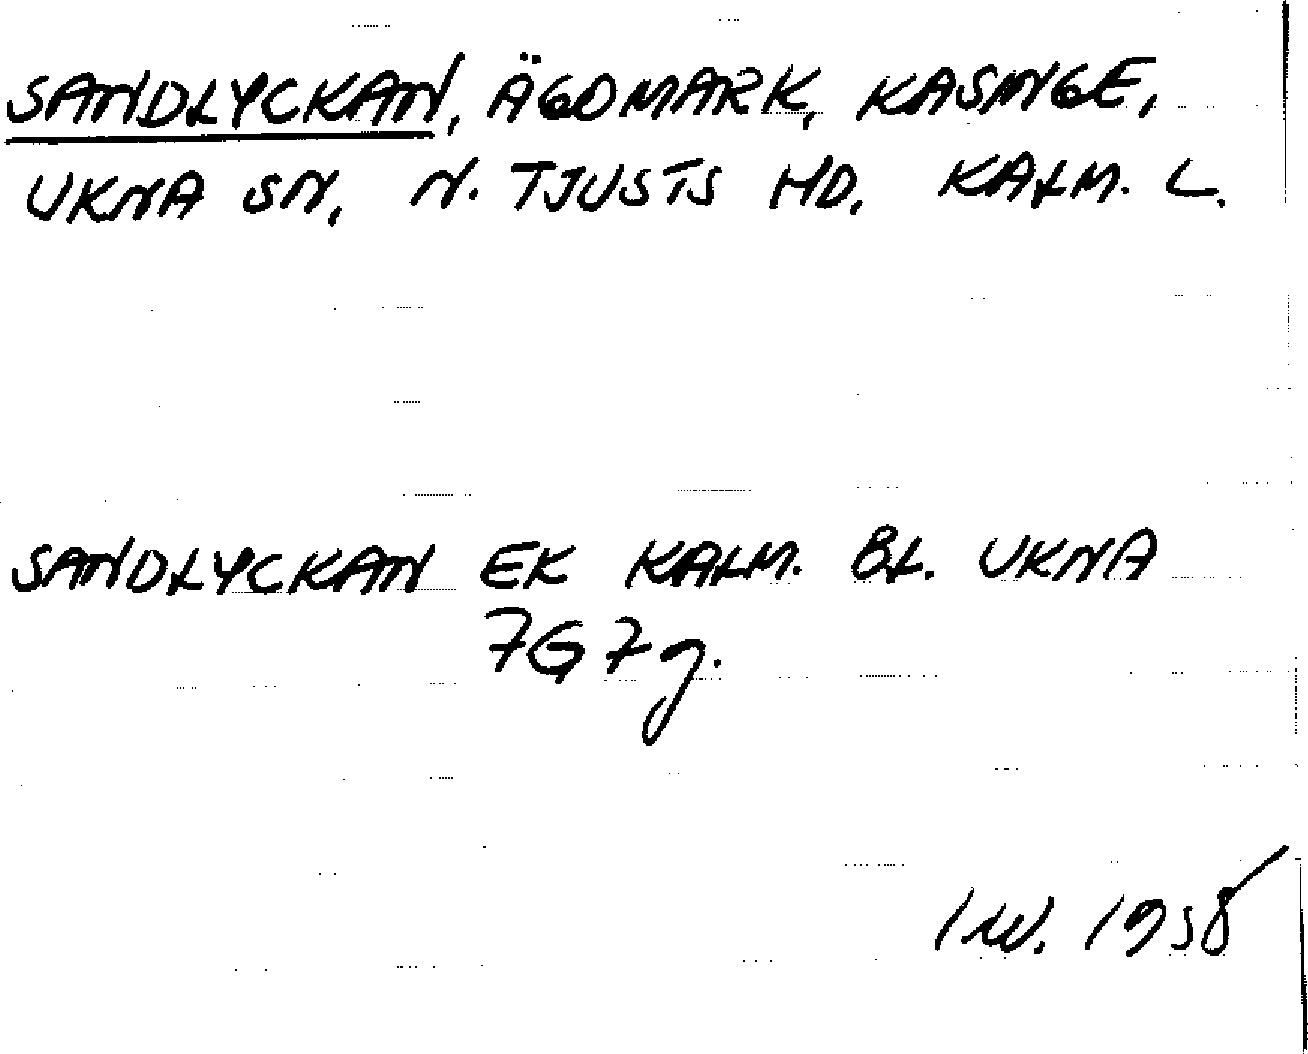 SANDLYCKAN, ÄGOMARK, KASINGE,
UKNA SN, N. TJUSTS HD, KALM. L.
SANDLYCKAN EK KALM. BL. UKNA
7G7g.
1958